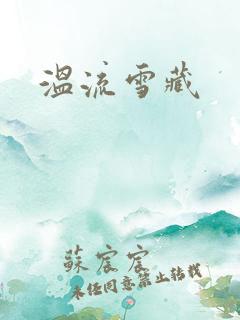 溫流雪藏
蘇宸宸
未经同意禁止转载